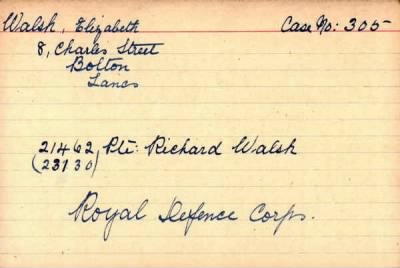 Walsh, Elizabeth Case No: 305
8, Charles Street
Bolton
Lancs
21462 Pte: Richard Walsh
(23130)
Royal Defence Corps.